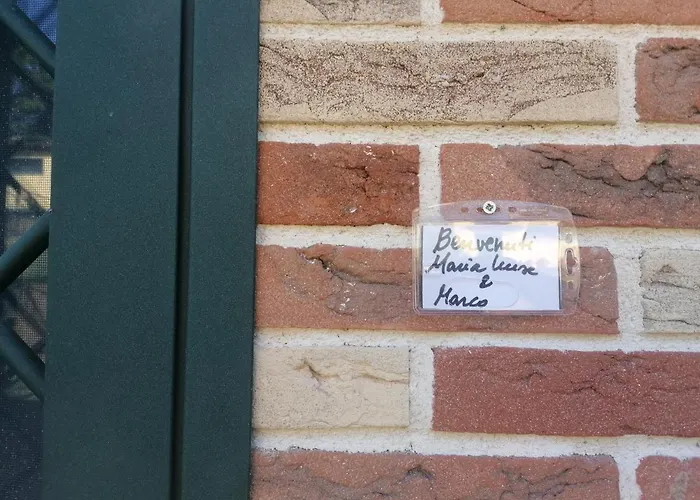 Benvenuti
Maria Luisa
e
Marco